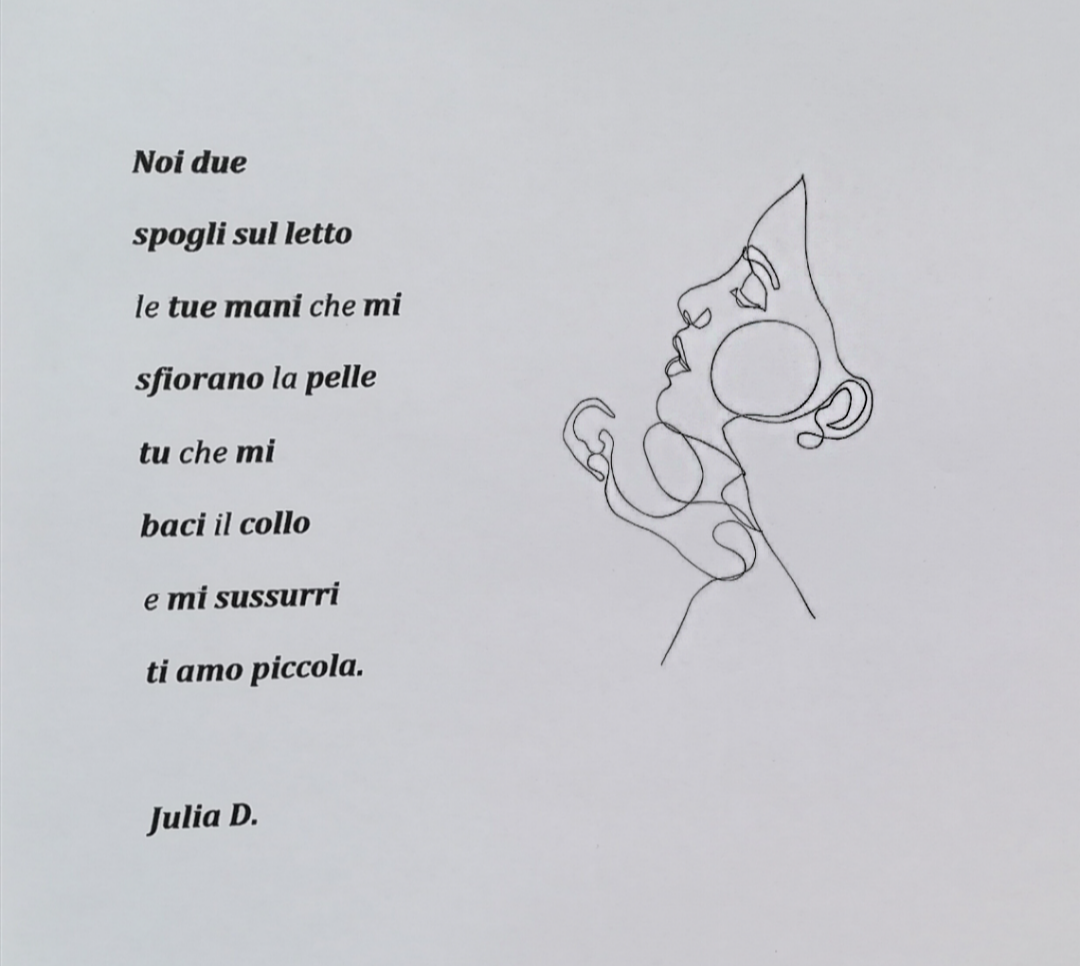 Noi due
spogli sul letto
le tue mani che mi
sfiorano la pelle
tu che mi
baci il collo
e mi sussurri
ti amo piccola.
Julia D.